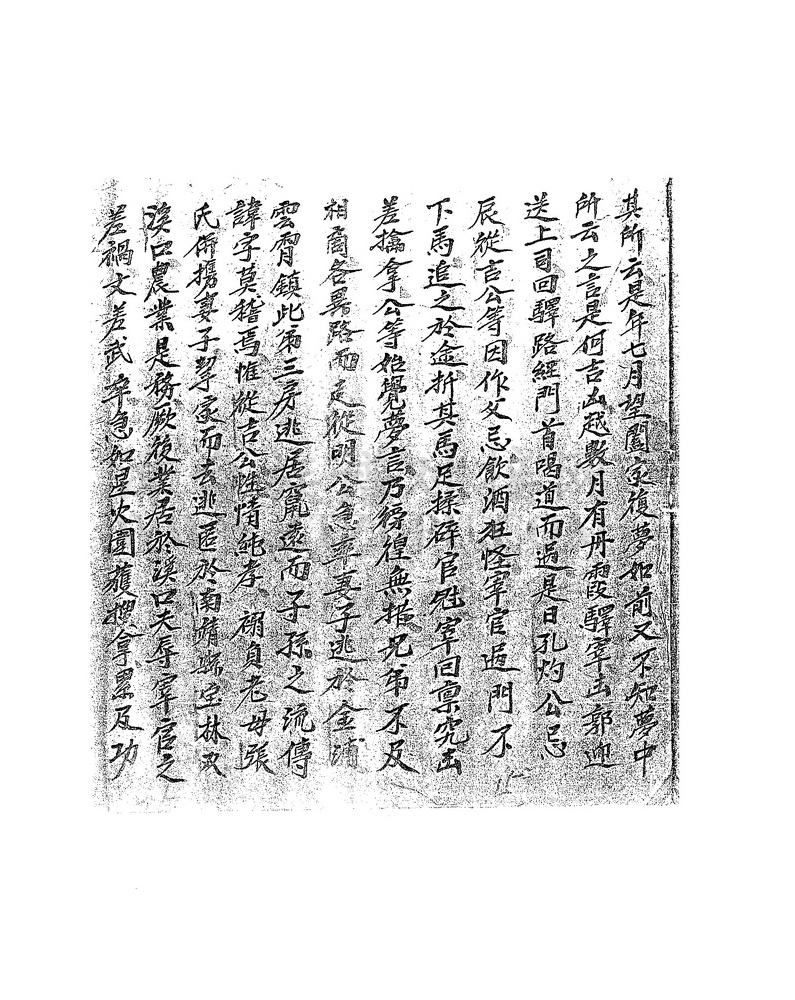 其所云是年七月望闔家復夢如前又不知夢中
所云之言是何吉凶越數月有丹霞驛宰出郭迎
送上司回驛路經門首喝道而過是日孔灼公忌
辰從吉公等因作父忌飲酒狂怪宰官過門不
下馬追之於途折其馬足揉碎官兜宰回禀究出
差擒拿公等始覺夢言乃徬徨無措兄弟不及
相商各畧路而走從明公急率妻子逃於金浦
雲霄鎮此第三房逃居竄遠而子孫之流傳
諱字莫稽焉惟從吉公性情純孝 襁負老母張
氏併携妻子挈家而去逃匿於南靖縣宝林双
溪口農業是務厥後業居於溪口夫辱宰官之
差禍文差武卒急如星火圍獲搜拿累及功